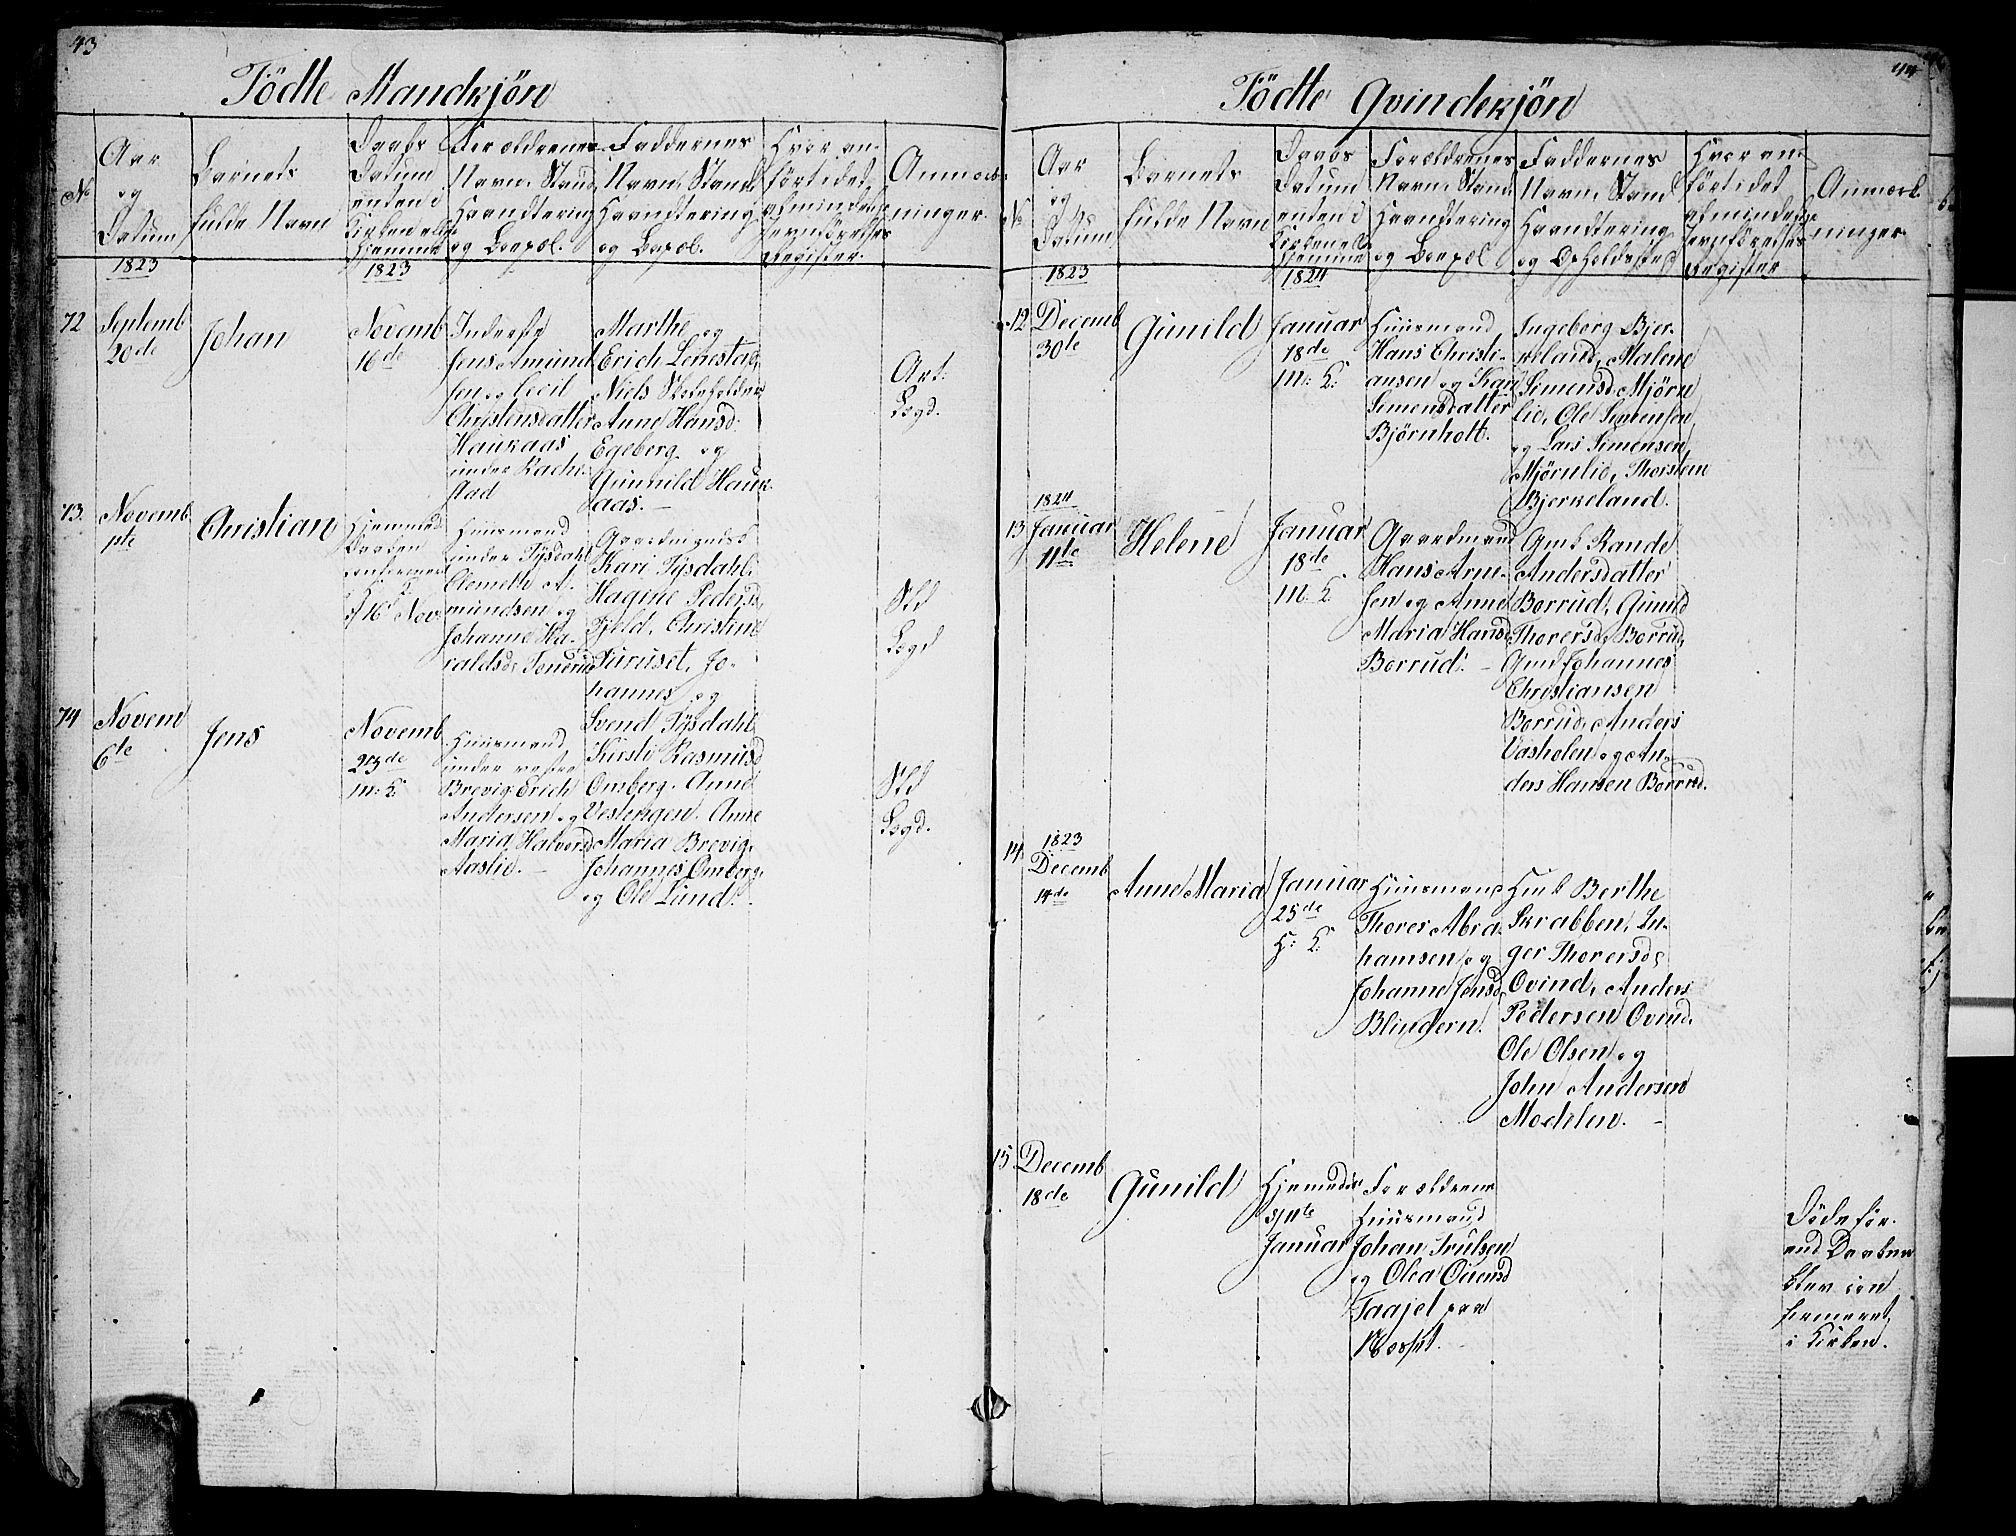 43
Födte Mandkjön
No
Aar
og
Datum
Barnets
fulde Navn
Daabs
Datum
enten i
Kirken eller
hjemme
Forældrenes
Navn, Stand
Haandtering
og Boepæl.
Faddernes
Navn, Stand
Haandtering
og Bopæl.
Hvor an-
fört i det
almindelige
Jevnförelses
Register.
Anmærk-
ninger.
1823
1823
72
Septemb
20de
Johan
Novemb
16de
Inderste
Jens Amund
sen og Cecil
Christensdatter
Haukaas
under Rach-
stad
Marthe og
Erich Lenestag,
Niels
Anne Hansd.
Egeberg og
Gunnild Hauk-
aas.
73.
Novemb
1ste
Christian
Hjemmed.
Daaben
confirmer
16 Nov.
Huusmand
under Tÿsdahl
Clemeth A-
mundsen og
Johanne Ha-
raldsd.
Gaardmands
Kari Tÿsdahl,
Hagine Pedersd
Fjeld, Christine
Furuset, Jo-
hannes og
Svend Tÿsdahl
74
Novem
6te
Jens
Novemb
23de
M. K.
Huusmand
under vestre
Brevig Erich
Andersen og
Maria Halvorsd
Aaslie.
Kirstie Rasmusd
Omberg, Anne
Vestengen, Anne
Maria Brevig,
Johannes Omberg,
og Ole Lund.
44
Födte Qvindekjön
No
Aar
og
Datum
Barnets
fulde Navn
Daabs
Datum
enten i
Kirken el
hjemme
Forældrenes
Navn, Stand
Haandtering
og Boepæl
Faddernes
Navn, Stand
Haandtering
og Opholdssted
Hvor an-
fört i det
almindelige
Jevnförelses
Register
Anmærk
ninger
1823
1824
12
Decemb
30te
Gunild
Januar
18de
M: K:
Huusmand
Hans Christi-
ansen og Kari
Simensdatter
Björnholt.
Ingeborg Bjer-
keland, Malene
Simensd. Mjörn
lie, Ole Simensen
og Lars Simensen
Mjörnlie, Thorsten
Bjerkeland.
1824
13
Januar
11te
Helene
Januar
18de
M. K.
Gaardmand
Hans Arne-
sen og Anne
Maria Hansd
Borrud.
Gmd Rande
Andersdatter
Borrud, Gunild
Thoresd. Borrud,
Gmd Johannes
Christiansen
Borrud, Anders
Vasholen og An-
ders Hansen Borrud.
1823
14
Decemb
14de
Anne Maria
Januar
25de
H: K:
Huusmand
Thores Abra
hamsen og
Johanne Jensd
Blindern.
Hmd Berthe
Skrabben, In-
ger Thoresd
Ovind, Anders
Pedersen Ovrud,
Ole Olsen og
John Andersen
Modelen.
15
Decemb
18de
Gunild
Hjemmedöbt
11te
Januar
Forældrene
Huusmand
Johan Trulsen
og Olea Evensd
Taajet
Döde för-
end Daaben
blev con
firmeret
i Kirken.